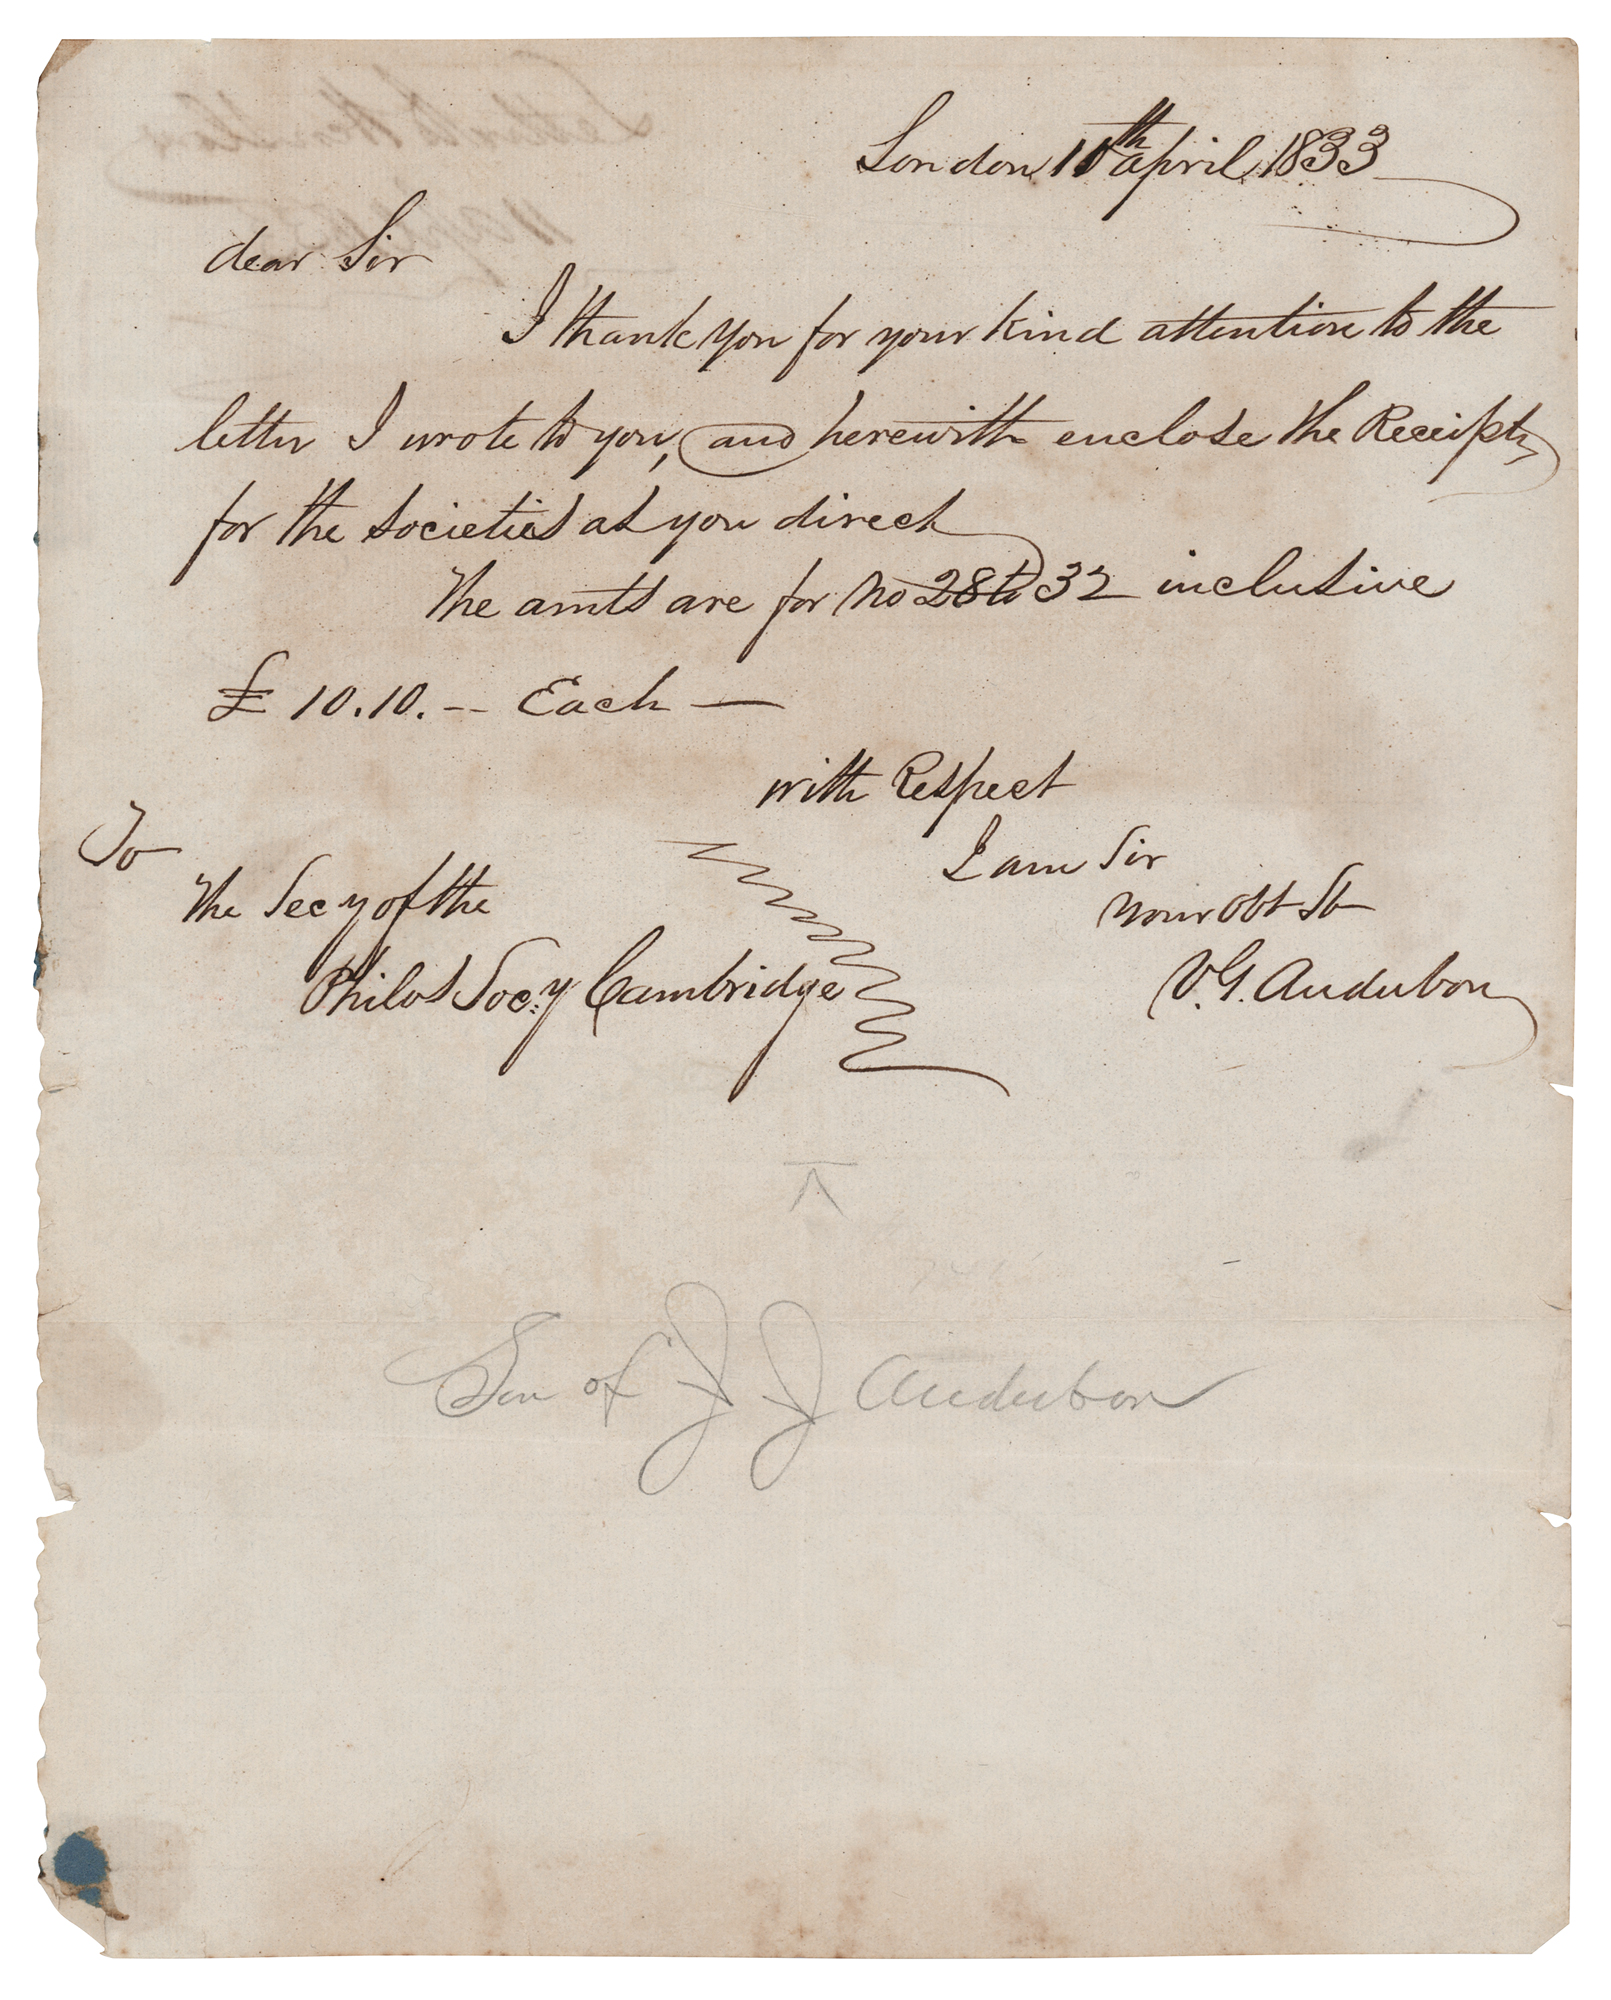 London 10th april 1833
dear Sir
I thank you for your kind attention to the
letter I wrote to you, and herewith enclose the Receipts
for the Societies as you direct
The amts are for No 28 to 32 inclusive
£ 10.10. -- Each —
with Respect
I am Sir
your Obt St
V. G. Audubon
To
The Secy of the
Philos Soc.y Cambridge
Son of J J Audubon